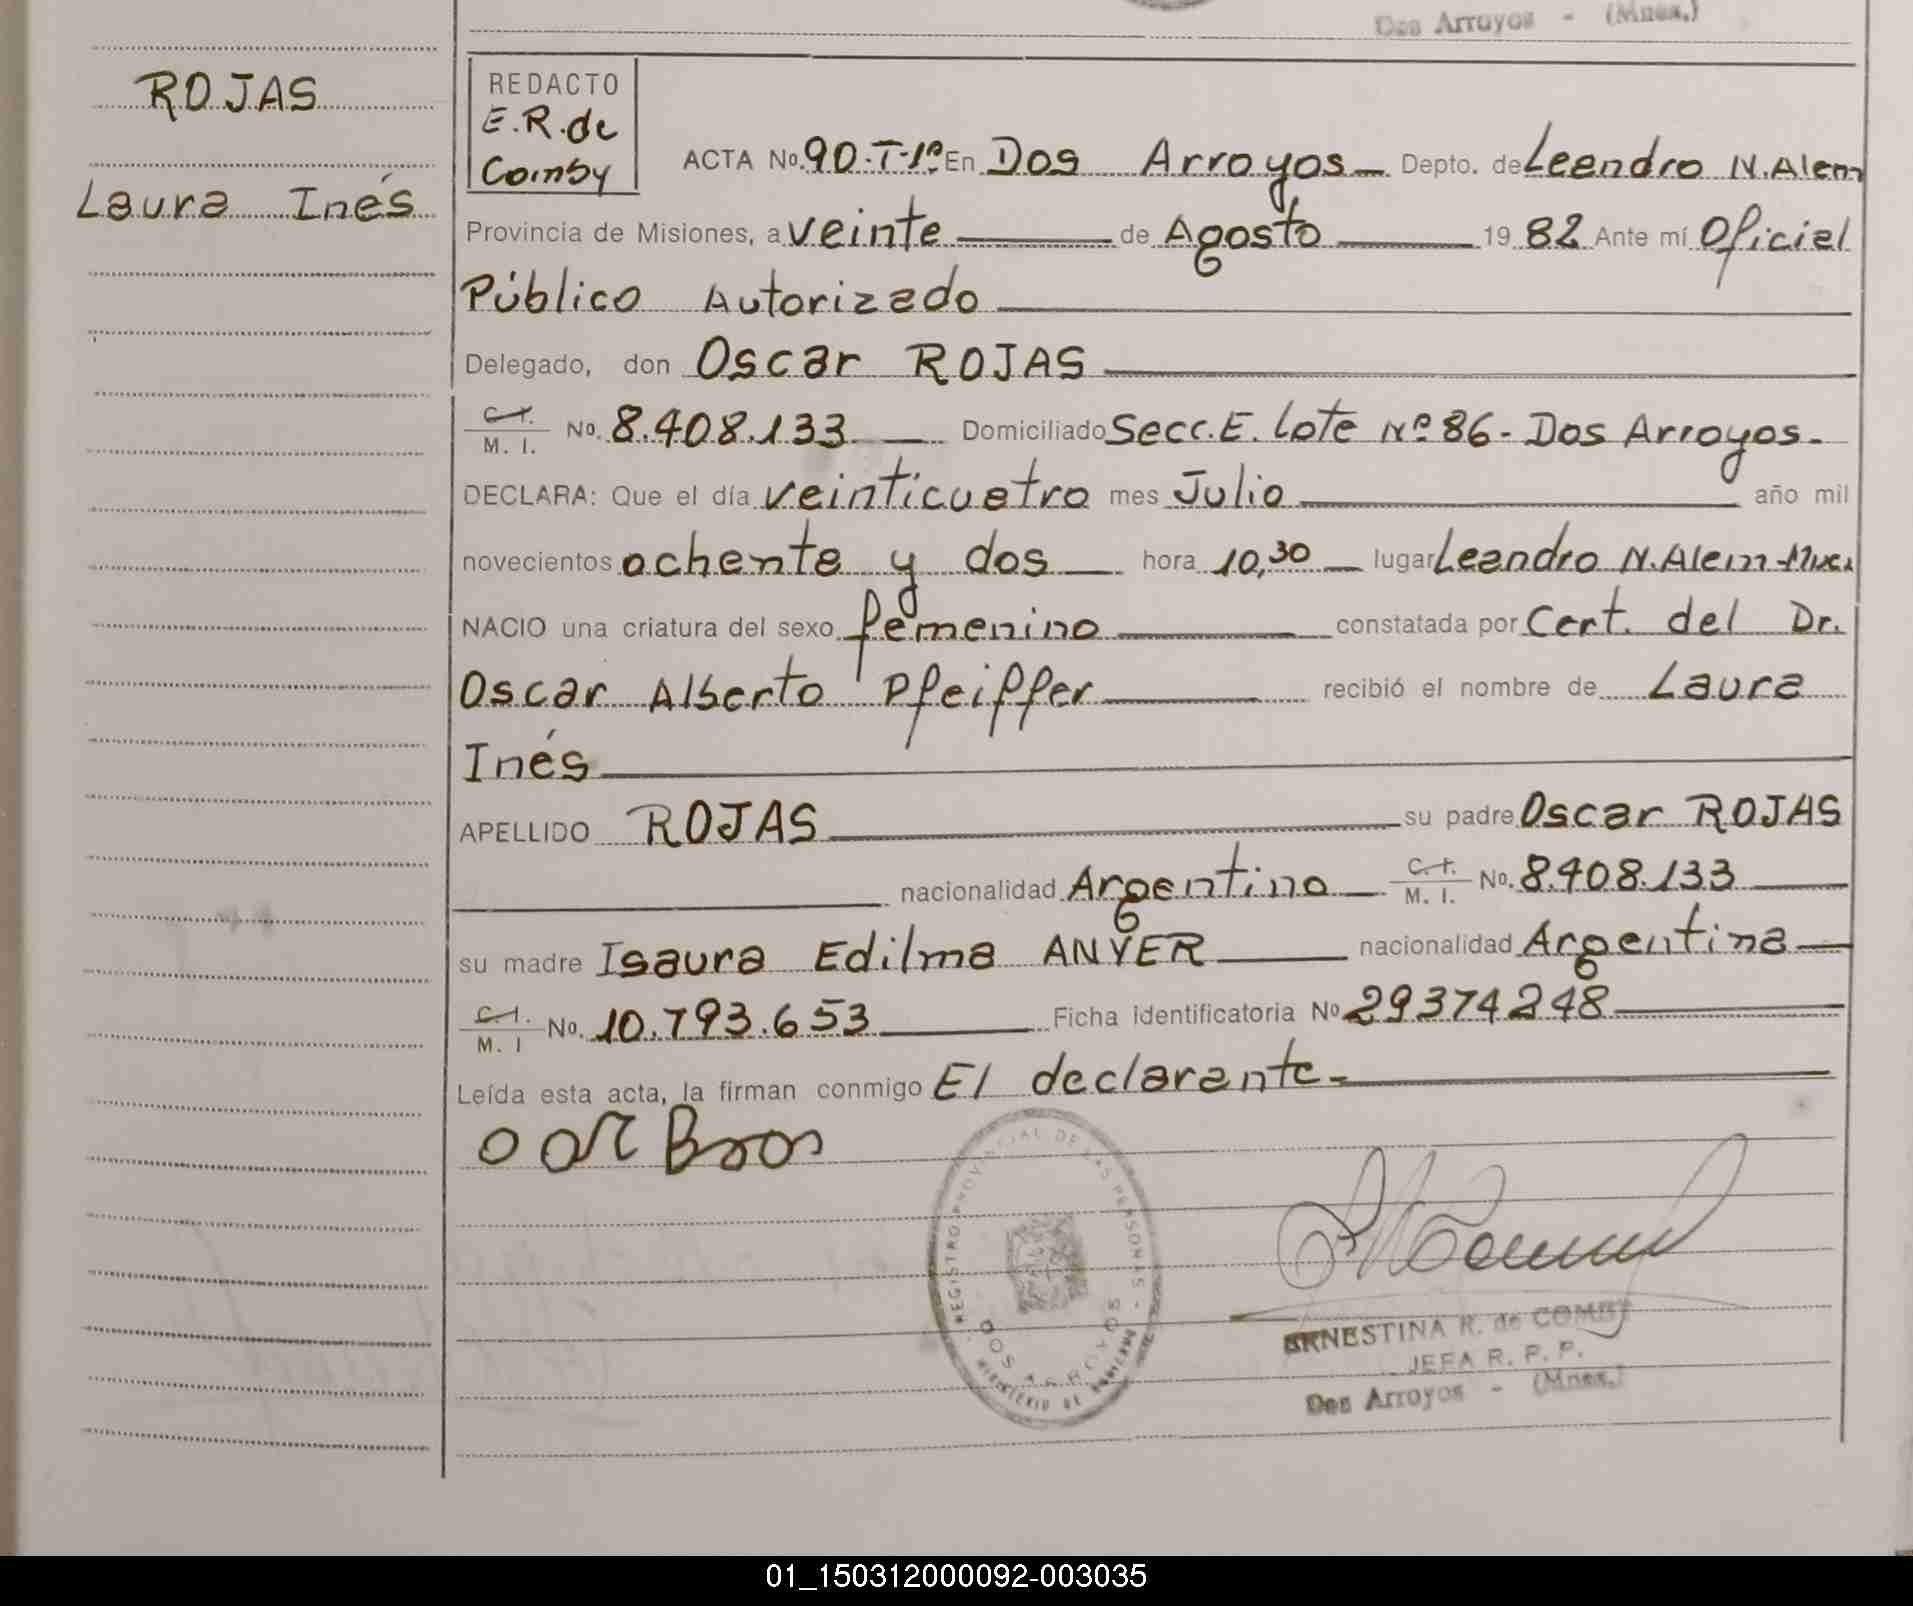 Dos Arroyos - (Mnes.)
ROJAS
Laura Inés
REDACTO
E.R.de
Comby
ACTA No. 90-T-1º En Dos Arroyos Depto. de Leandro N. Alem
Provincia de Misiones, a veinte de Agosto 19 82 Ante mí Oficial
Público Autorizado
Delegado, don Oscar ROJAS
C. I. M. I. No. 8.408.133 Domiciliado Secc. E. Lote Nº 86 - Dos Arroyos.
DECLARA: Que el día veinticuatro mes Julio año mil
novecientos ochenta y dos hora 10,30 lugar Leandro N. Alem
NACIO una criatura del sexo femenino constatada por Cert. del Dr.
Oscar Alberto Pfeiffer recibió el nombre de Laura
Inés
APELLIDO ROJAS su padre Oscar ROJAS
nacionalidad Argentino C. I. M. I. No. 8.408.133
su madre Isaura Edilma ANYER nacionalidad Argentina
C. I. M. I No. 10.793.653 Ficha identificatoria No 29374248
Leída esta acta, la firman conmigo El declarante-
REGISTRO PROVINCIAL DE LAS PERSONAS - MINISTERIO DE
DOS ARROYOS
ERNESTINA R. de COMBY
JEFA R. P. P.
Dos Arroyos - (Mnes.)
01_150312000092-003035